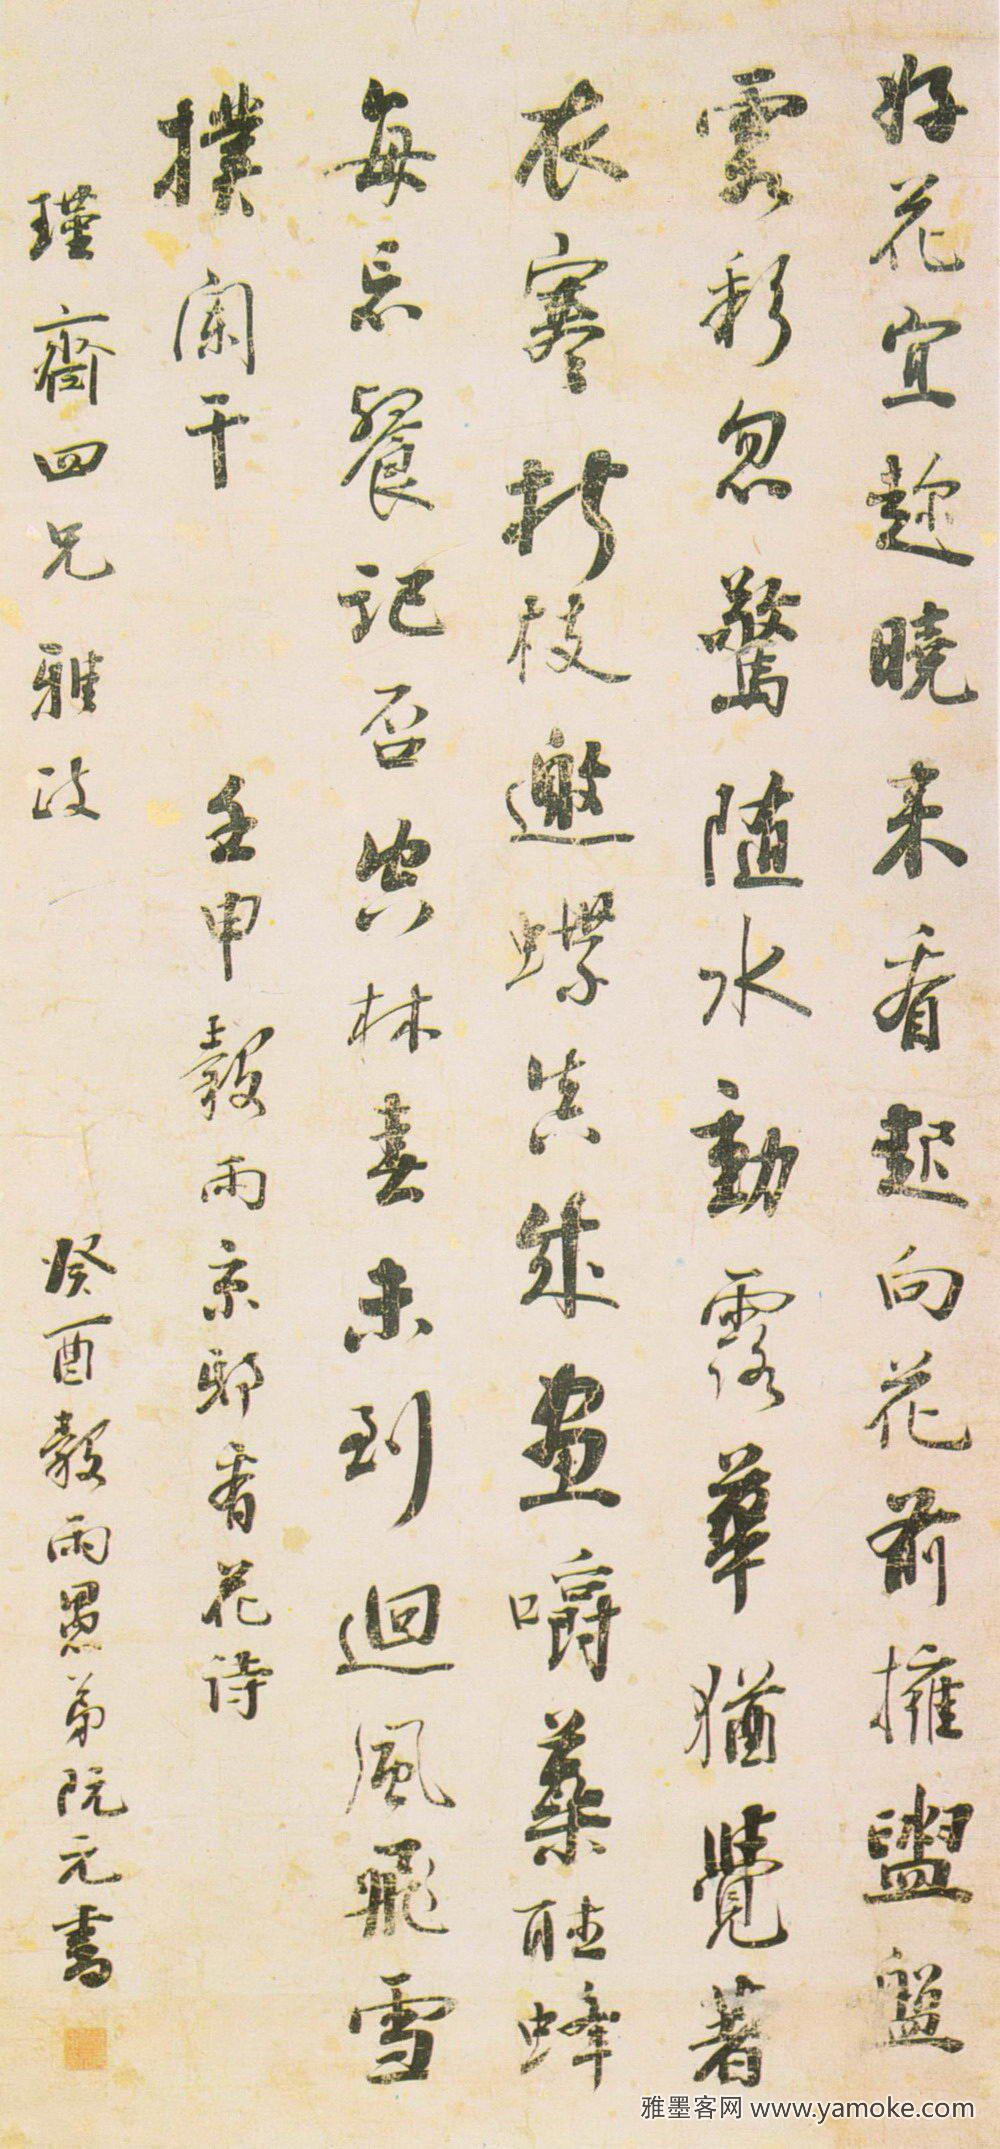 好花宜趁曉來看起向花前擁盥盤
雲彩忽驚隨水動露華猶覺著
衣寒折枝邀蝶真成畫嚼蕊聽蜂
每忘餐記否與林春未到迴風飛雪
撲闌干 壬申穀雨京邸看花詩
瑾齋四兄雅政 癸酉穀雨愚弟阮元書
雅墨客网 www.yamoke.com